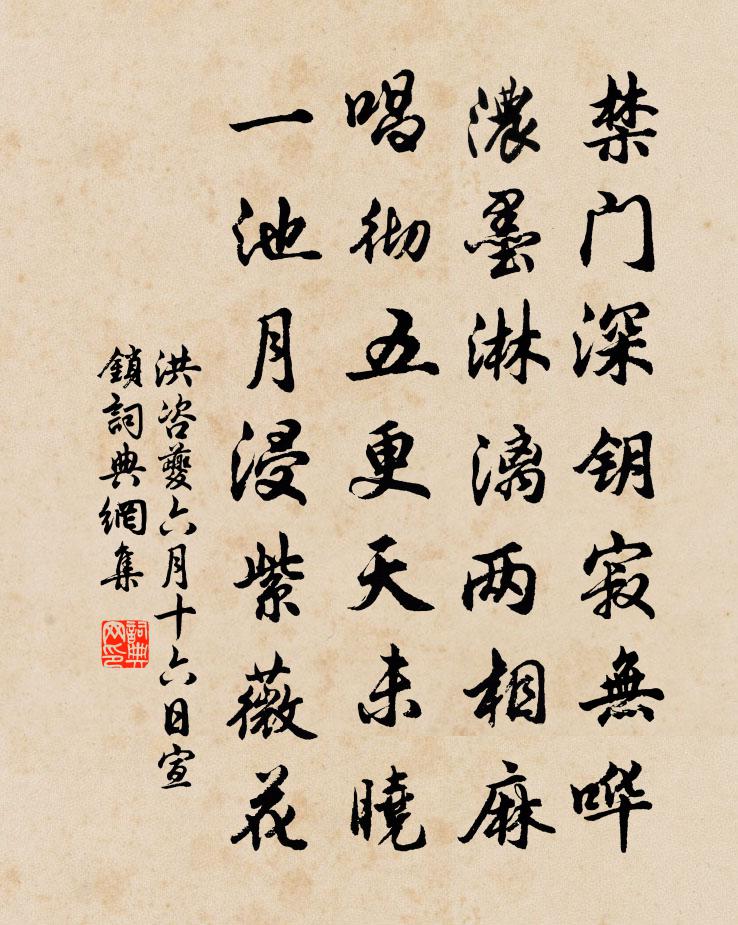 禁门深钥寂無哗
濃墨淋漓两相麻
唱彻五更天未曉
一池月浸紫薇花
洪咨夔六月十六日宣
鎖詞典網集
詞典
网印